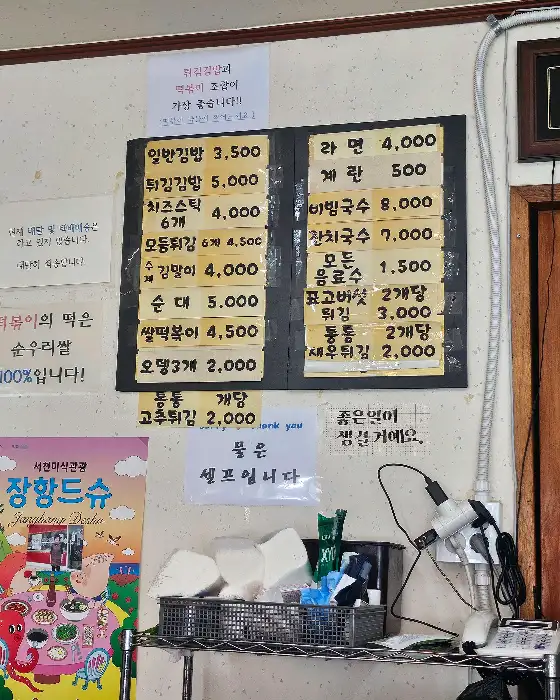 튀김김밥과
떡볶이 조합이
가장 좋습니다!!
일반김밥 3,500
튀김김밥 5,000
치즈스틱
6개 4,000
모둠튀김 6개 4,500
수제 김말이 4,000
순대 5,000
쌀떡볶이 4,500
오뎅3개 2,000
통통 개당
고추튀김 2,000
라면 4,000
계란 500
비빔국수 8,000
잔치국수 7,000
모든
음료수 1,500
표고버섯 2개당
튀김 3,000
통통 2개당
새우튀김 2,000
현재 배달 및
하고 있지 않습니다.
떡볶이의 떡은
순우리쌀
100%입니다!
thank you
물은
셀프입니다
좋은일이
생길거예요.
서천미식관광
장항드슈
Janghang Deshu